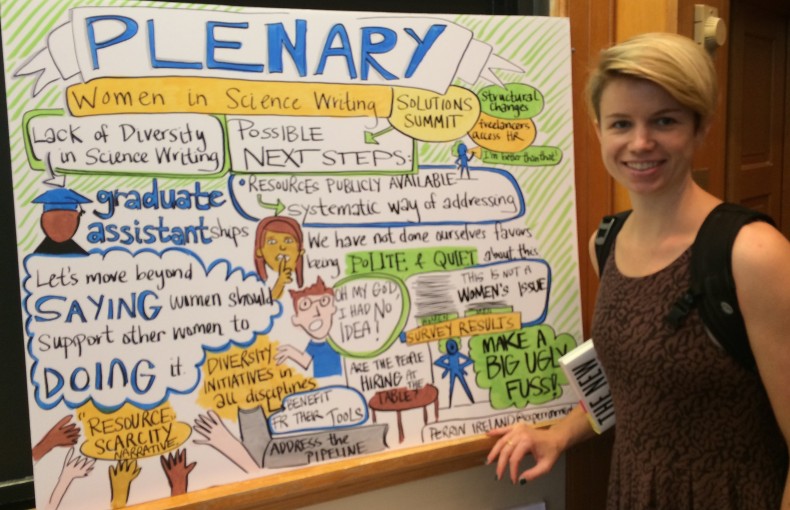 PLENARY
Women in Science Writing
SOLUTIONS
SUMMIT
Structural
changes
freelancers
access HR
"I'm better than that"
Lack of Diversity
in Science Writing
POSSIBLE
NEXT STEPS:
graduate
assistantships
RESOURCES PUBLICLY AVAILABLE
systematic way of addressing
We have not done ourselves favors
being POLITE & QUIET about this
Let's move beyond
SAYING women should
support other women to
DOING it.
OH MY GOD,
I HAD NO
IDEA!
THIS IS NOT A
WOMEN'S ISSUE
SURVEY RESULTS
MAKE A
BIG UGLY
FUSS!
DIVERSITY
INITIATIVES in
all disciplines
ARE THE PEOPLE
HIRING AT THE
TABLE?
BENEFIT
FR THEIR TOOLS
ADDRESS THE
PIPELINE
"RESOURCE
SCARCITY"
NARRATIVE
PERRIN IRELAND
THE NEW